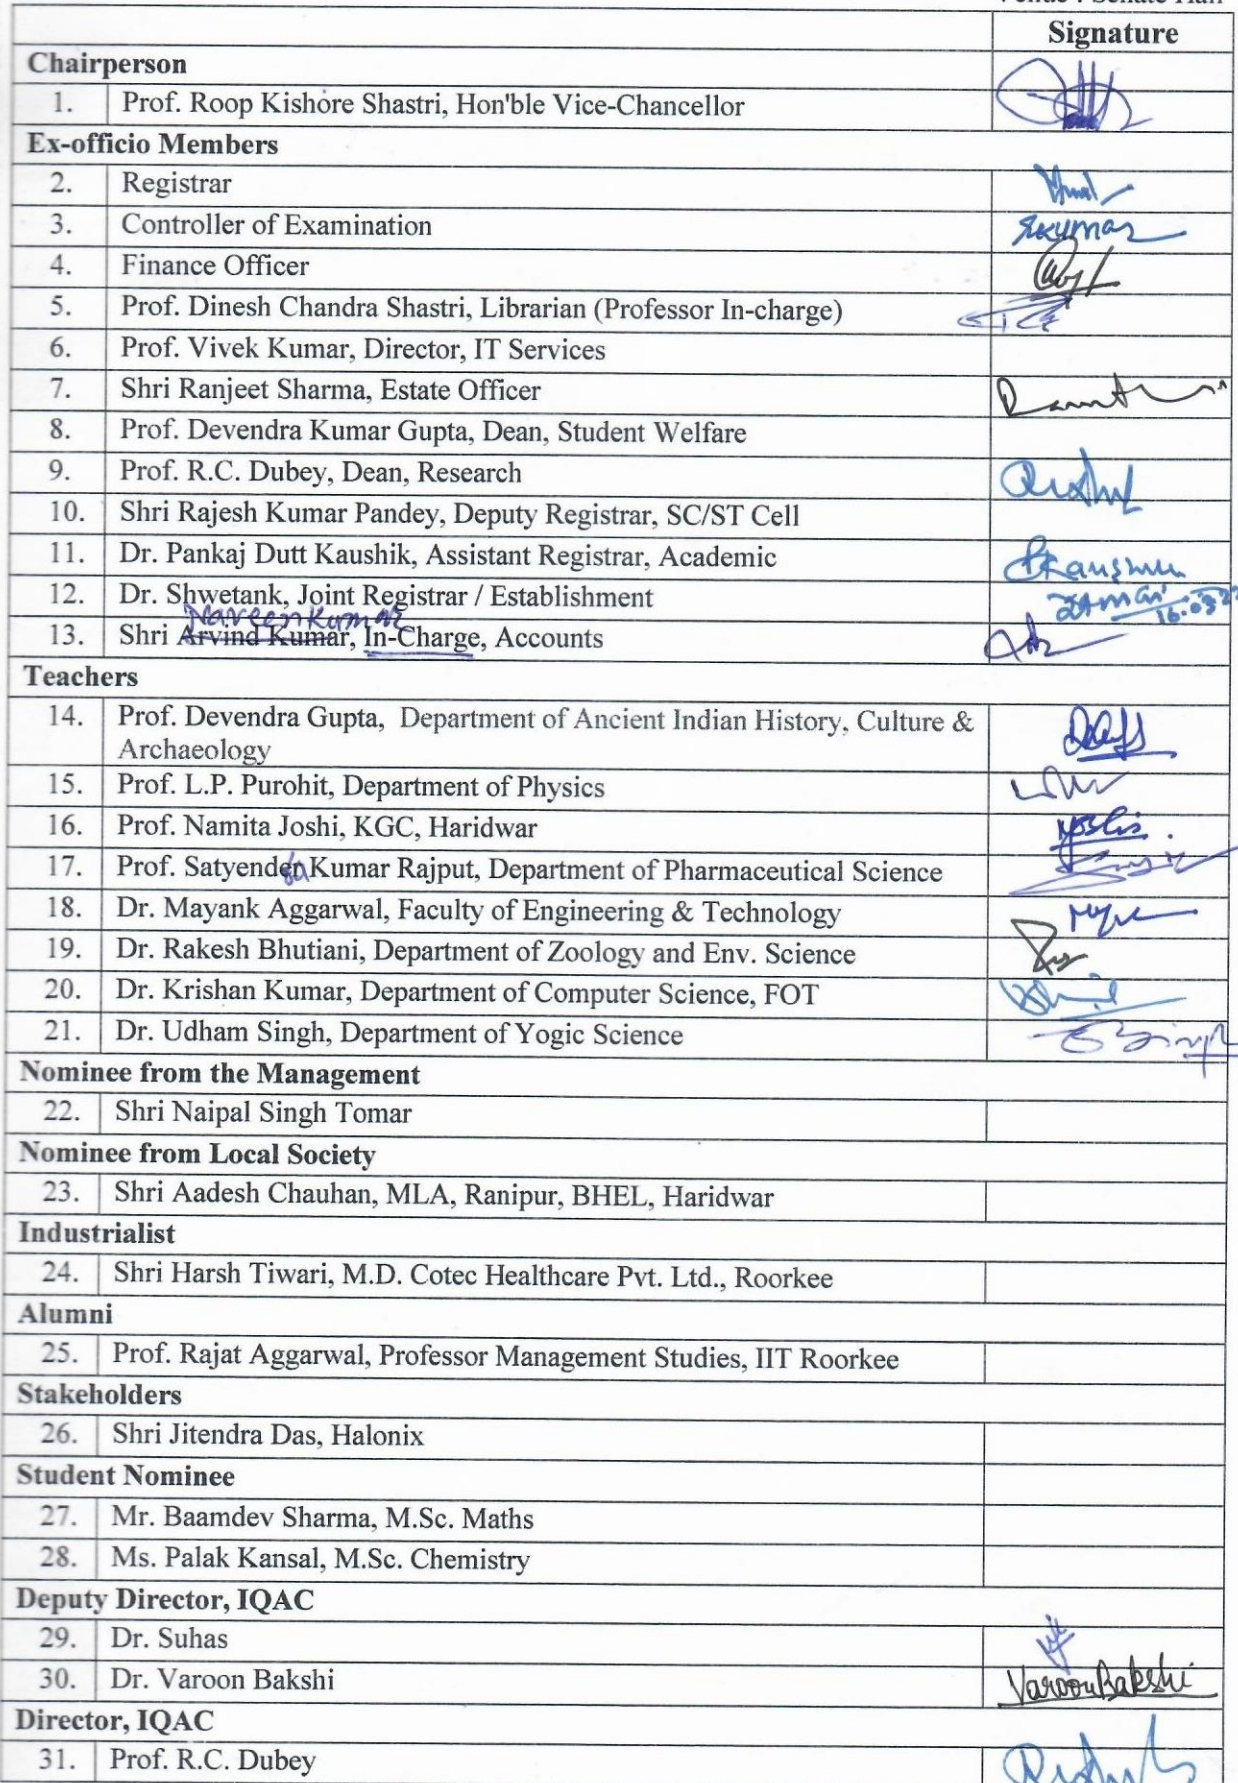 Venue : Senate Hall
Signature
Chairperson
1. Prof. Roop Kishore Shastri, Hon'ble Vice-Chancellor
Ex-officio Members
2. Registrar
3. Controller of Examination
Skumar
4. Finance Officer
5. Prof. Dinesh Chandra Shastri, Librarian (Professor In-charge)
6. Prof. Vivek Kumar, Director, IT Services
7. Shri Ranjeet Sharma, Estate Officer
8. Prof. Devendra Kumar Gupta, Dean, Student Welfare
9. Prof. R.C. Dubey, Dean, Research
10. Shri Rajesh Kumar Pandey, Deputy Registrar, SC/ST Cell
11. Dr. Pankaj Dutt Kaushik, Assistant Registrar, Academic
12. Dr. Shwetank, Joint Registrar / Establishment
Naveen Kumar
13. Shri Arvind Kumar, In-Charge, Accounts
Teachers
14. Prof. Devendra Gupta, Department of Ancient Indian History, Culture &
Archaeology
15. Prof. L.P. Purohit, Department of Physics
16. Prof. Namita Joshi, KGC, Haridwar
17. Prof. Satyender Kumar Rajput, Department of Pharmaceutical Science
18. Dr. Mayank Aggarwal, Faculty of Engineering & Technology
19. Dr. Rakesh Bhutiani, Department of Zoology and Env. Science
20. Dr. Krishan Kumar, Department of Computer Science, FOT
21. Dr. Udham Singh, Department of Yogic Science
Nominee from the Management
22. Shri Naipal Singh Tomar
Nominee from Local Society
23. Shri Aadesh Chauhan, MLA, Ranipur, BHEL, Haridwar
Industrialist
24. Shri Harsh Tiwari, M.D. Cotec Healthcare Pvt. Ltd., Roorkee
Alumni
25. Prof. Rajat Aggarwal, Professor Management Studies, IIT Roorkee
Stakeholders
26. Shri Jitendra Das, Halonix
Student Nominee
27. Mr. Baamdev Sharma, M.Sc. Maths
28. Ms. Palak Kansal, M.Sc. Chemistry
Deputy Director, IQAC
29. Dr. Suhas
30. Dr. Varoon Bakshi
Varoon Bakshi
Director, IQAC
31. Prof. R.C. Dubey